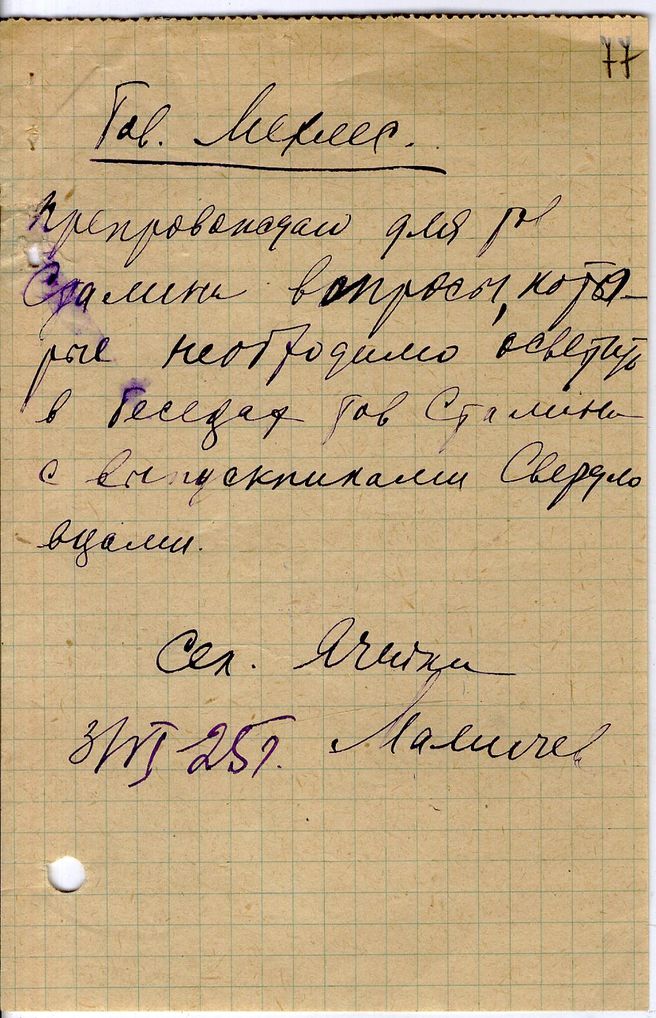 77
Тов. Мехлес.
Препровождаю для тов
Сталина вопросы, кото-
рые необходимо осветить
в беседах тов Сталина
с выпускниками Свердло
вцами.
Сек. Ячейки
3/VI 25 г. Мамичев